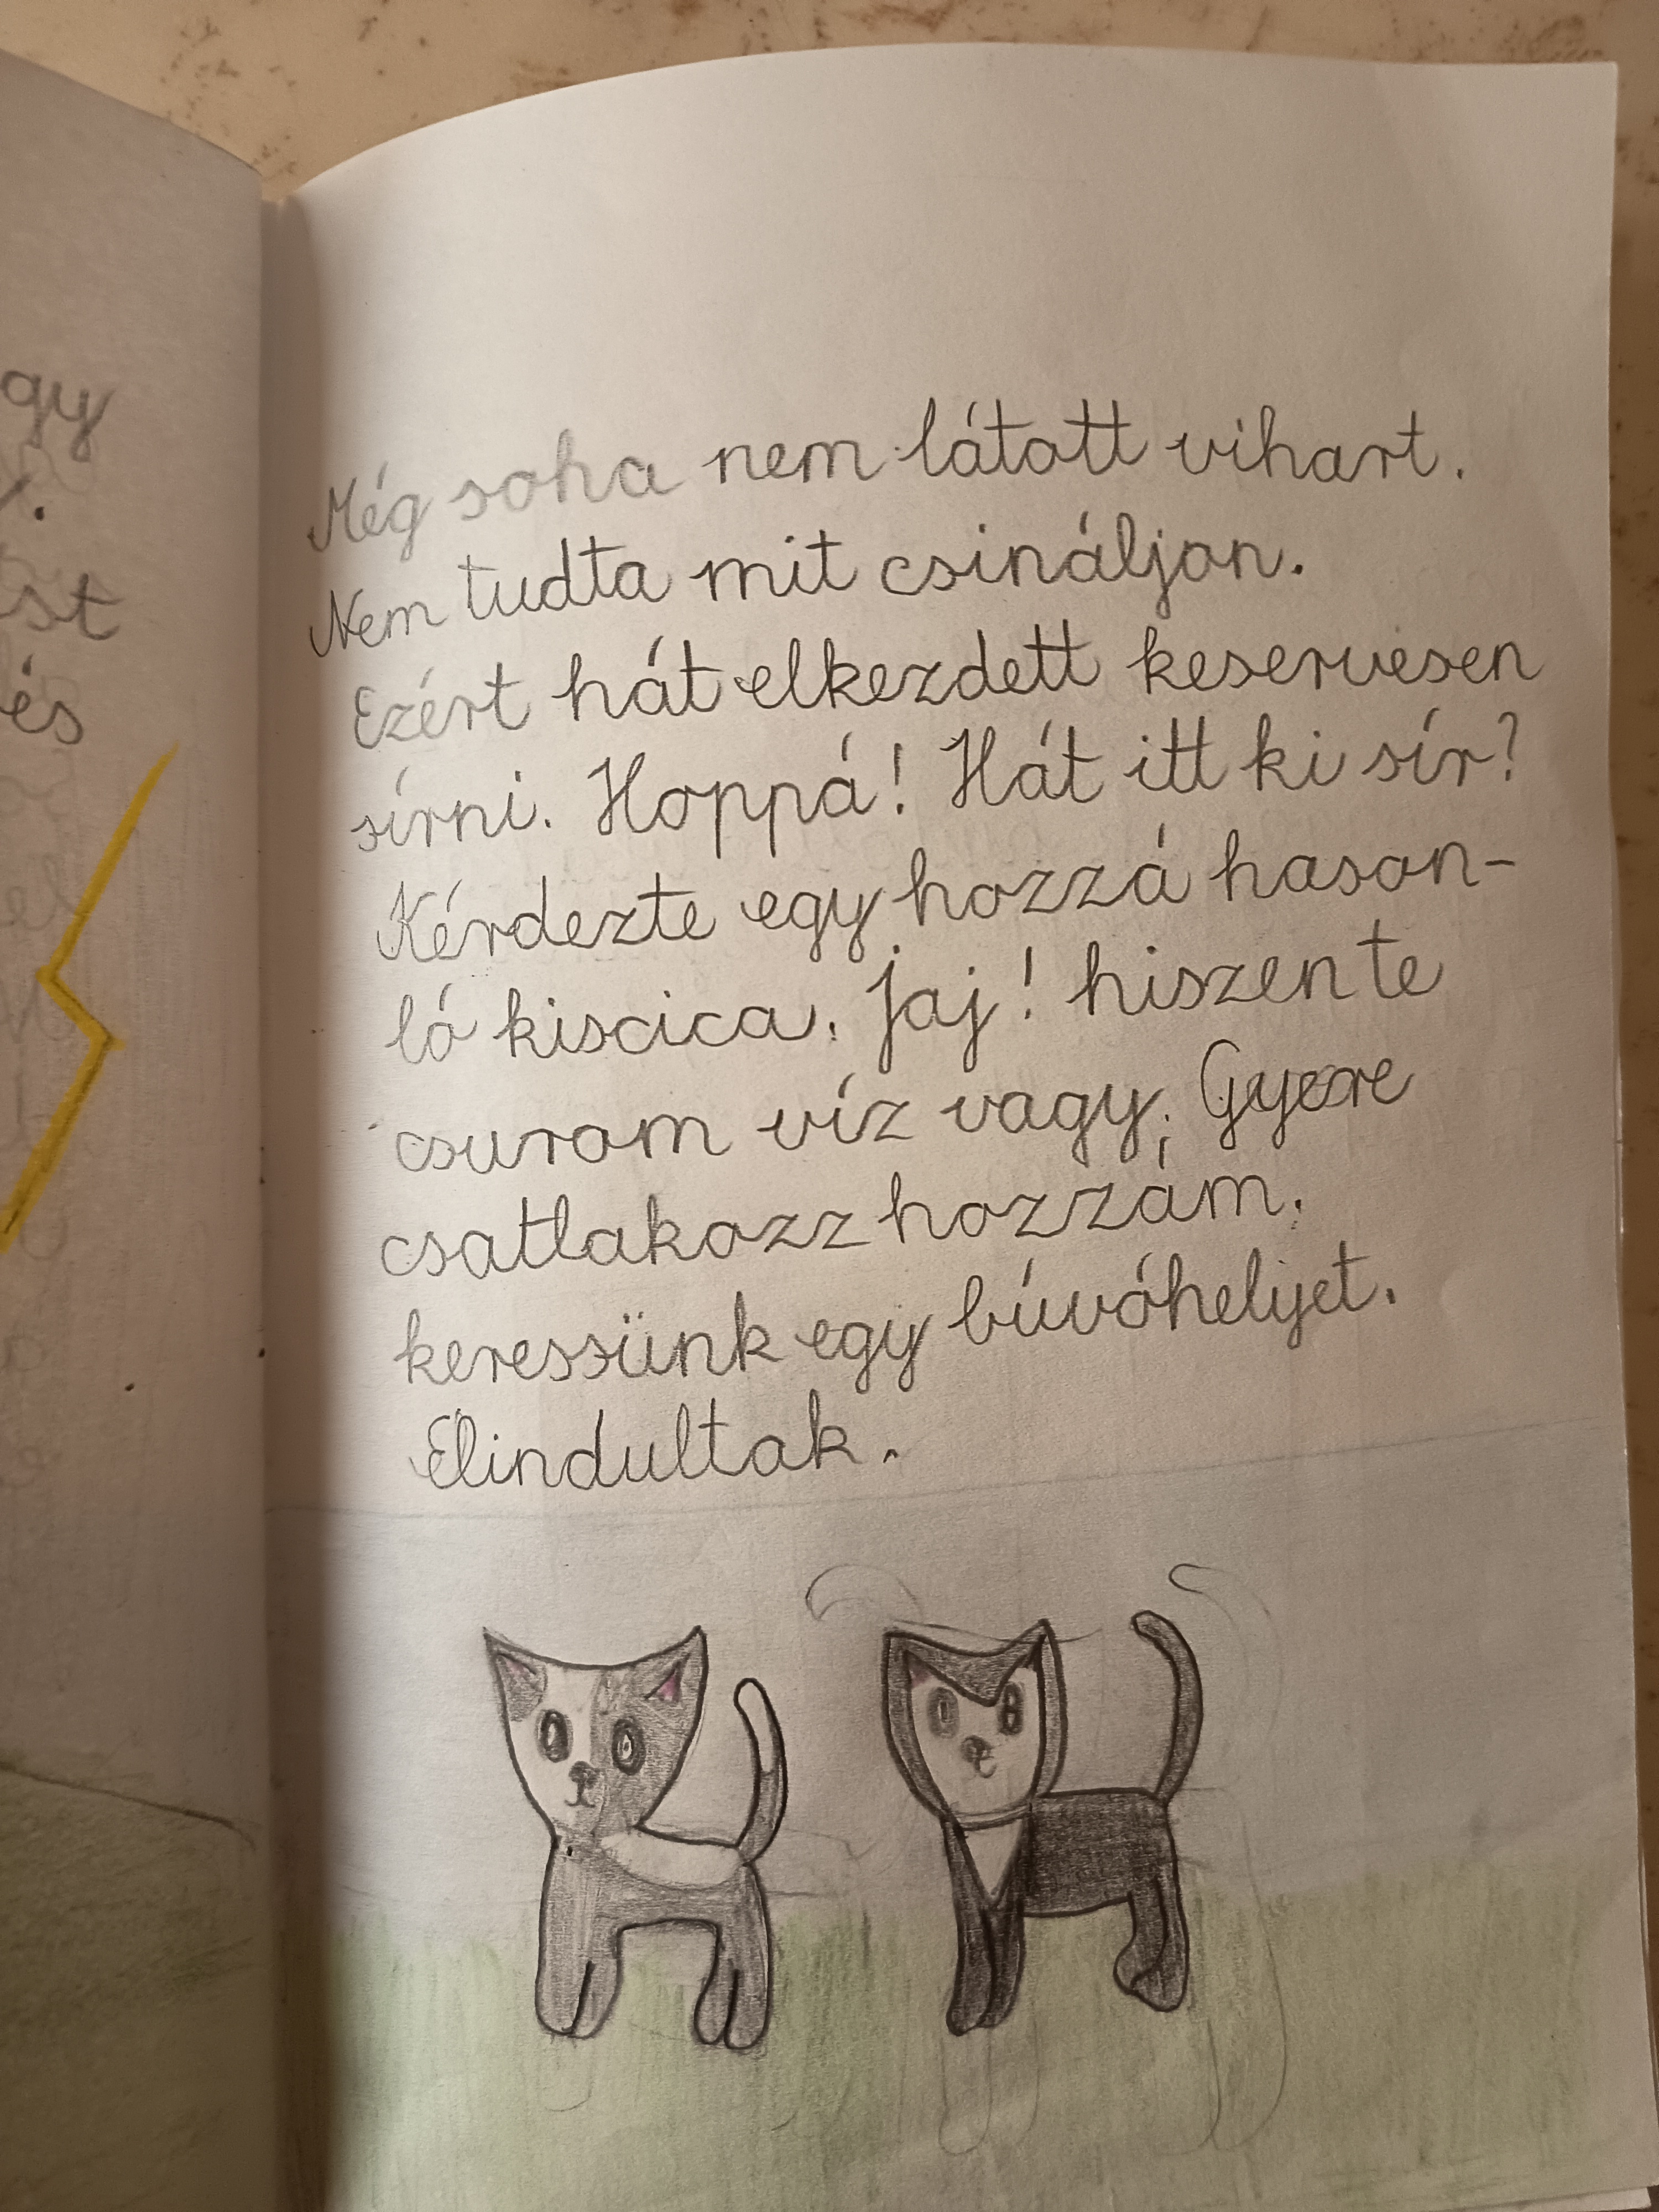 gy
st
és
Még soha nem látott vihart.
Nem tudta mit csináljon.
Ezért hát elkezdett keservesen
sírni. Hoppá! Hát itt ki sír?
Kérdezte egy hozzá hason-
ló kiscica. Jaj! hiszen te
csurom víz vagy; Gyere
csatlakozz hozzám.
keressünk egy búvóhelyet.
Elindultak.